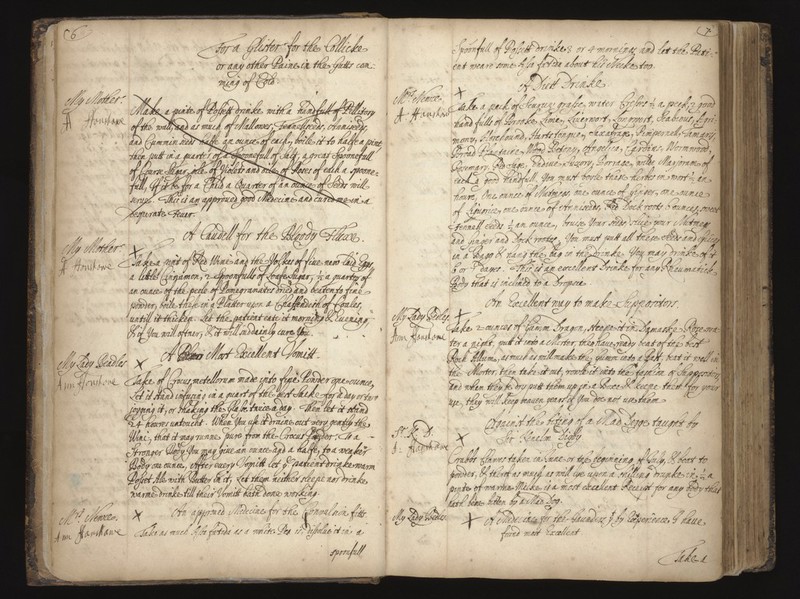 66
For a Glister for the Collicke
or any other Paine in the Gutts com=
ming of Cold.
My Mother.
A Hanshawe
Make a pinte of Possett drinke with a handfull of Pellitory
of the wall, and as much of Mallowes,
and Comminseeds halfe an ounce of each, boile it to halfe a pint,
then putt in a quarter of a Spoonefull of Salt, a great Spoonefull
of Course Sugar, oile of Violets and oile of Roses of each a spoone=
full, If it be for a Child a Quarter of an ounce of Seeds will
serve. This is an approved good Medicine and cured me in a
desperate
A Caudell for the Bloody Fluxe.
My Mother
A Hanshawe
Take a pint of Red Wine and the Yolkes of five new laid Eggs
a little Cinnamon, 2 spoonefulls of Loafe Sugar, a quarter of
an ounce of the peele of Pomegranates dried and beaten to fine
powder, boile these in a Platter upon a Chaffendish of Coales,
untill it thicken. Let the patient eate it morning & evening,
or if you will oftner, & it will suddainly cure you.
A Most Excellent Vomitt.
My Lady Beadles
Ann Hanshawe
Take of Crocus metellorum made into fine Powder 2 ounces,
Let it stand infusing in a quart of the best Sacke for 9 dayes
jogging it, or shaking the Glasse twice a day. Then let it stand
24 howres untoucht. When you use it draine out very gently the
Wine, that it may runne pure from the Crocus To a
Stronger Body you may give an ounce and a halfe, to a weaker
Body an ounce, after every Vomitt let ye patient drinke warme
Possett Ale with Butter in it, Let them neither sleepe nor drinke
warme drinke till their Vomitt hath done working.
Mrs. Newce
Ann Hanshawe
An approved Medicine for the Convulsion fitts.
Take as much Assafetida as a white Pea is, dissolve it in a
spoonfull
67
Spoonfull of Possett drinke 3 or 4 mornings and let the Pati=
ent weare some Assafetida about his Necke too.
A Diett Drinke
Mrs. Newce.
A Hanshawe
Take a peck of Scurvy grasse, water Cresses ½ a peck, 2 good
handfulls of Brooke Lime, Liverwort, Lungwort, Scabious, Egri=
mony, Horehound, Harts tongue, Pimpernell, Tamary,
Broad Plantaine, Wood Betony, Angelica, Cardus, Wormwood,
Rosemary, Succory, Borrage, Majoram of
each a good handfull, You must boile these hearbes in wort ½ an
houre, One ounce of Nutmegs, one ounce of ginger, one ounce
of Liquorice, one ounce of Anniseeds, Red Dock roots 4 ounces, sweet
Fennell seeds ½ an ounce, bruise Your seeds, slice your Nutmeg
and ginger and Dock rootes, You must putt all these seeds and spices
in a Bagg & hang the bag in the Drinke. You may drinke of it
5 or 7 dayes. This is an excellent Drinke for any Rheumatick
Body that is inclined to a Dropsie.
An Excellent way to make Suppositors.
My Lady Beadles
Ann Hanshawe
Take 2 ounces of Gumm Dragon, steepe it in Damaske Rose wa=
ter a night, putt it into a Morter, then have ready beat of the best
Rock Allum, as much as will make the gumm into a Past, beat it well in
the Morter, then take it out, worke it into the fashion of Suppositors,
and when they be dry putt them up in a Boxe & keepe them for your
use, they will keep seaven yeares if you do not use them.
Against the biting of a Mad Dogge taught by
Sr Kenelm Digby
Sr. K. D.
A: Hanshawe
Crabb Clawes taken in June or the beginning of July, & beat to
powder, & take as much as will lie upon a shilling & drinke in ½ a
pinte of warme Milke, is a most excellent Receipt for any body that
hath been bitten by a Mad Dog.
My Lady Beadles
A Medicine for the Gaundies, yt by experience I have
found most excellent
Take a